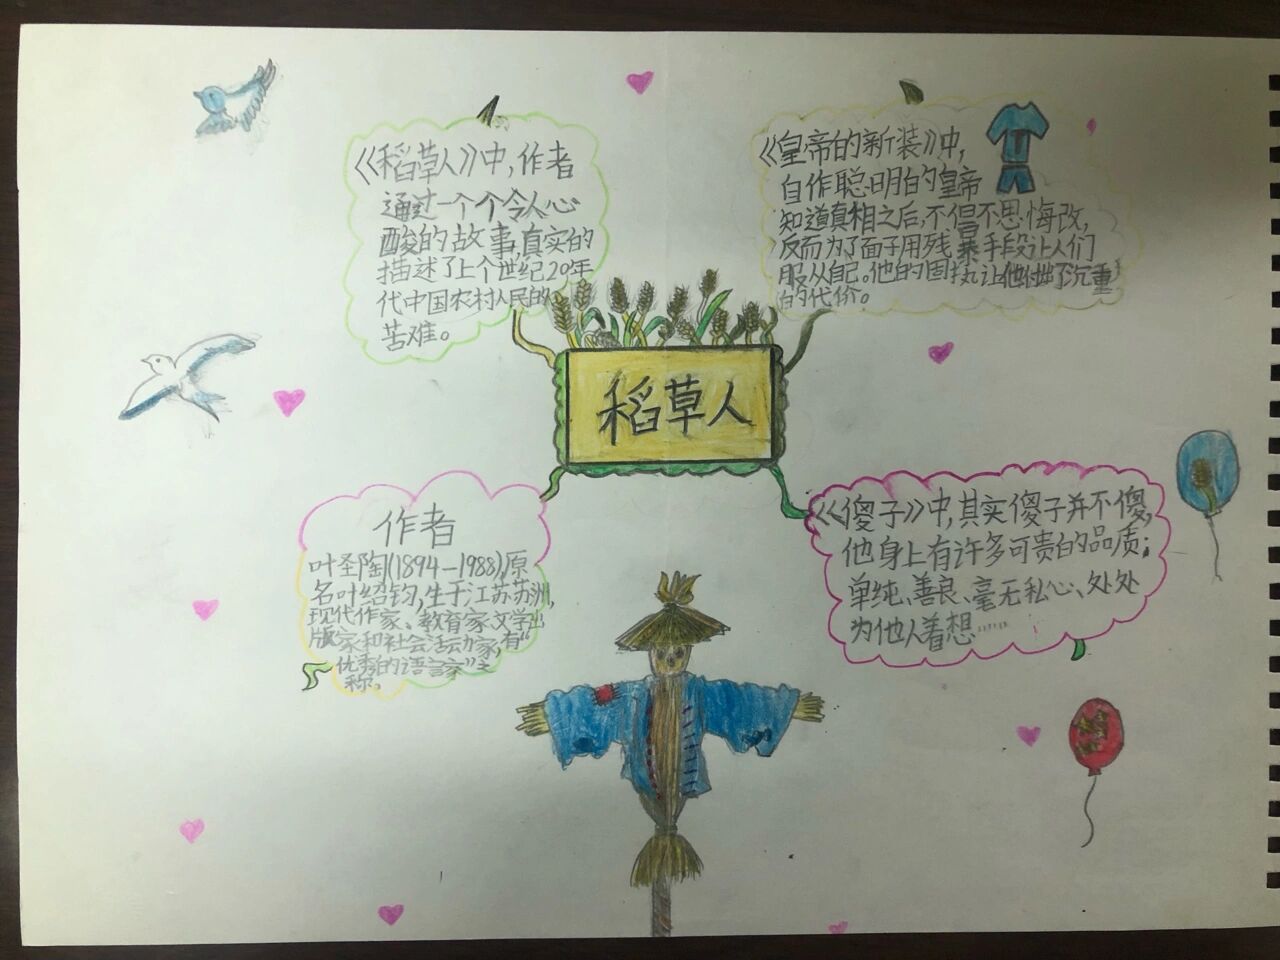 《稻草人》中,作者
通过一个个令人心
酸的故事,真实的
描述了上个世纪20年
代中国农村人民的
苦难。
《皇帝的新装》中,
自作聪明的皇帝
知道真相之后,不但不思悔改,
反而为了面子用残暴手段让人们
服从自己。他的固执让他付出了沉重
的代价。
稻草人
作者
叶圣陶(1894-1988),原
名叶绍钧,生于江苏苏洲,
现代作家、教育家、文学出
版家和社会活动家,有“
优秀的语言家”之
称。
《傻子》中,其实傻子并不傻,
他身上有许多可贵的品质;
单纯、善良、毫无私心、处处
为他人着想……